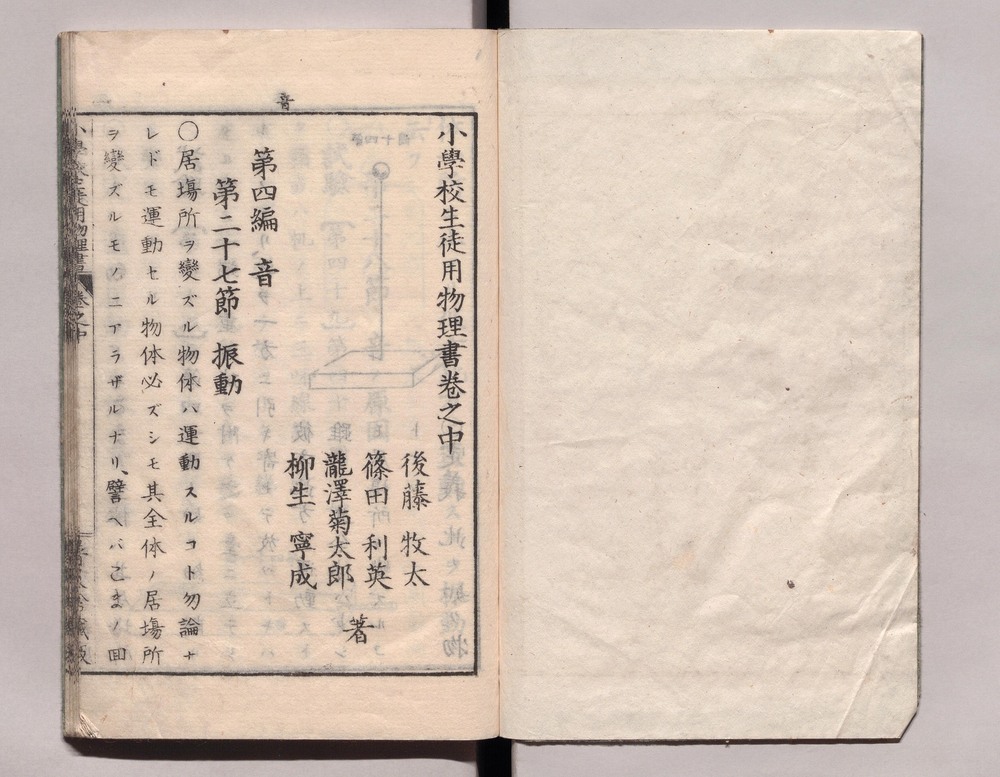 音
小學校生徒用物理書卷之中
後藤牧太
篠田利英
瀧澤菊太郎
柳生寧成
著
第四編 音
第二十七節 振動
〇居塲所ヲ變ズル物体ハ運動スルコト勿論ナ
レドモ運動セル物体必ズシモ其全体ノ居塲所
ヲ變ズルモノニアラザルナリ、譬ヘバこまノ回
小學校生徒用物理書 卷之中